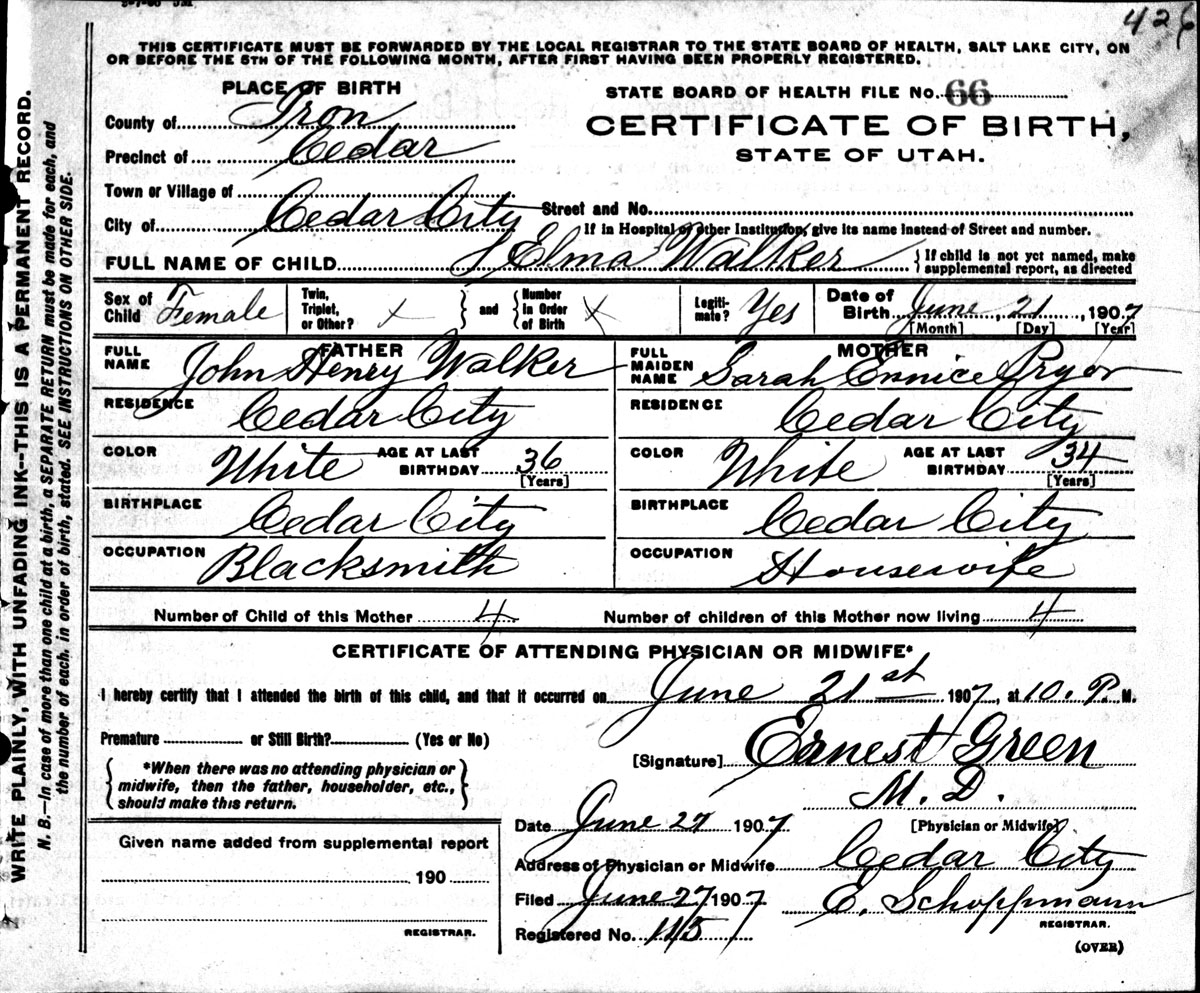 426
THIS CERTIFICATE MUST BE FORWARDED BY THE LOCAL REGISTRAR TO THE STATE BOARD OF HEALTH, SALT LAKE CITY, ON
OR BEFORE THE 5TH OF THE FOLLOWING MONTH, AFTER FIRST HAVING BEEN PROPERLY REGISTERED.
PLACE OF BIRTH
STATE BOARD OF HEALTH FILE No. 66
County of Iron
CERTIFICATE OF BIRTH,
Precinct of Cedar
STATE OF UTAH.
Town or Village of
City of Cedar City
Street and No.
If in Hospital or other Institution, give its name instead of Street and number.
FULL NAME OF CHILD Elma Walker
{ If child is not yet named, make
supplemental report, as directed
Sex of Child Female
Twin, Triplet, or Other? X
} and {
Number In Order of Birth X
Legiti-mate? Yes
Date of Birth June 21, 1907
[Month] [Day] [Year]
FATHER
FULL NAME John Henry Walker
RESIDENCE Cedar City
COLOR White AGE AT LAST BIRTHDAY 36
[Years]
BIRTHPLACE Cedar City
OCCUPATION Blacksmith
MOTHER
FULL MAIDEN NAME Sarah Eunice Pryor
RESIDENCE Cedar City
COLOR White AGE AT LAST BIRTHDAY 34
[Years]
BIRTHPLACE Cedar City
OCCUPATION Housewife
Number of Child of this Mother 4 Number of children of this Mother now living 4
CERTIFICATE OF ATTENDING PHYSICIAN OR MIDWIFE*
I hereby certify that I attended the birth of this child, and that it occurred on June 21st 1907, at 10. P. M.
Premature or Still Birth? (Yes or No)
[Signature] Ernest Green
M. D.
[Physician or Midwife]
{ *When there was no attending physician or
midwife, then the father, householder, etc.,
should make this return. }
Date June 27 1907
Address of Physician or Midwife Cedar City
Given name added from supplemental report
190
REGISTRAR.
Filed June 27 1907 E. Schoppmann
REGISTRAR.
Registered No. 115
(OVER)
WRITE PLAINLY, WITH UNFADING INK—THIS IS A PERMANENT RECORD.
N. B.—In case of more than one child at a birth, a SEPARATE RETURN must be made for each, and
the number of each, in order of birth, stated. SEE INSTRUCTIONS ON OTHER SIDE.